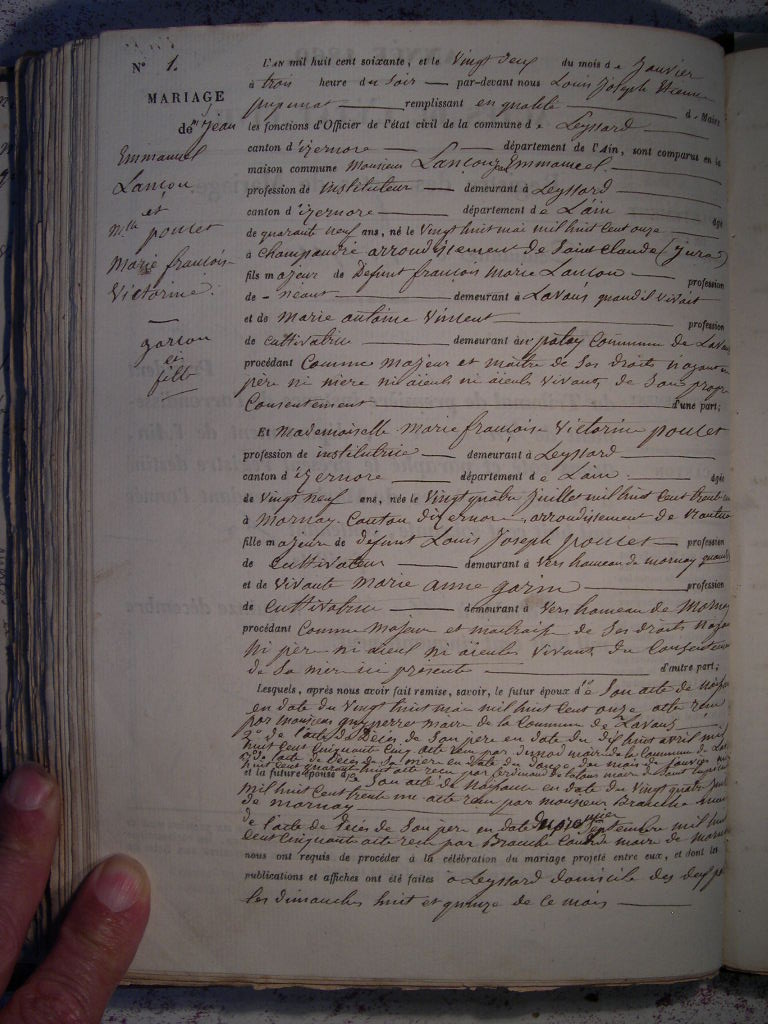 N° 1.
MARIAGE
de Mr jean
Emmanuel
Lançon
et
Mlle poncet
Marie françoise
Victorine.
garçon
et
fille
L'AN mil huit cent soixante, et le Vingt deux du mois de Janvier
à trois heure du Soir par-devant nous Louis Joseph Etienne
remplissant en qualité de Maire
les fonctions d'Officier de l'état civil de la commune de Leyssard
canton d'izernore département de l'Ain, sont comparus en la
maison commune Monsieur Lançon jean Emmanuel
profession de instituteur demeurant à Leyssard
canton d'izernore département de L'ain âgé
de quarante neuf ans, né le Vingt huit mai mil huit cent onze
à arrondissement de Saint Claude (jura)
fils majeur de Défunt françois Marie Lançon profession
de néant demeurant à Lavans quand il Vivait
et de Marie antoine Vincent profession
de cultivatrice demeurant à Commune de Lavans
procédant Comme Majeur et maitre de Ses droits n'ayant ni
père ni mère ni aieuls ni aieules Vivants de Son propre
Consentement d'une part;
Et Mademoiselle Marie françoise Victorine poncet
profession de institutrice demeurant à Leyssard
canton d'izernore département de L'ain âgée
de Vingt neuf ans, née le Vingt quatre juillet mil huit Cent trente
à Mornay Canton d'izernore, arrondissement de Nantua
fille majeure de défunt Louis Joseph poncet profession
de cultivateur demeurant à Vers hameau de mornay quand
et de Vivante Marie anne gorin profession
de Cultivatrice demeurant à Vers hameau de Mornay
procédant Comme Majeure et maitraisse de Ses droits n'ayant
Ni père ni aieul ni aieules Vivants du Consentement
de Sa mère ici présente d'autre part;
Lesquels, après nous avoir fait remise, savoir, le futur époux de Son acte de Naissance
en date du Vingt huit mai mil huit Cent onze, acte reçu
par monsieur maire de la Commune de Lavans
2° de l'acte de Décès de Son père en date du dix huit avril mil
huit Cent Cinquante Cinq acte reçu par maire de la Commune de
de l'acte de Décès de Sa mère en date du mois de janvier mil
huit Cent quarante huit acte reçu par maire de
et la future épouse de Son acte de Naissance en date du Vingt quatre
mil huit Cent trente un acte reçu par monsieur maire
de Mornay
de l'acte de Décès de Son père en date du premier Septembre mil huit
Cent Cinquante acte reçu par maire de Mornay
nous ont requis de procéder à la célébration du mariage projeté entre eux, et dont les
publications et affiches ont été faites à Leyssard domicile des deux
les dimanches huit et quinze de ce mois